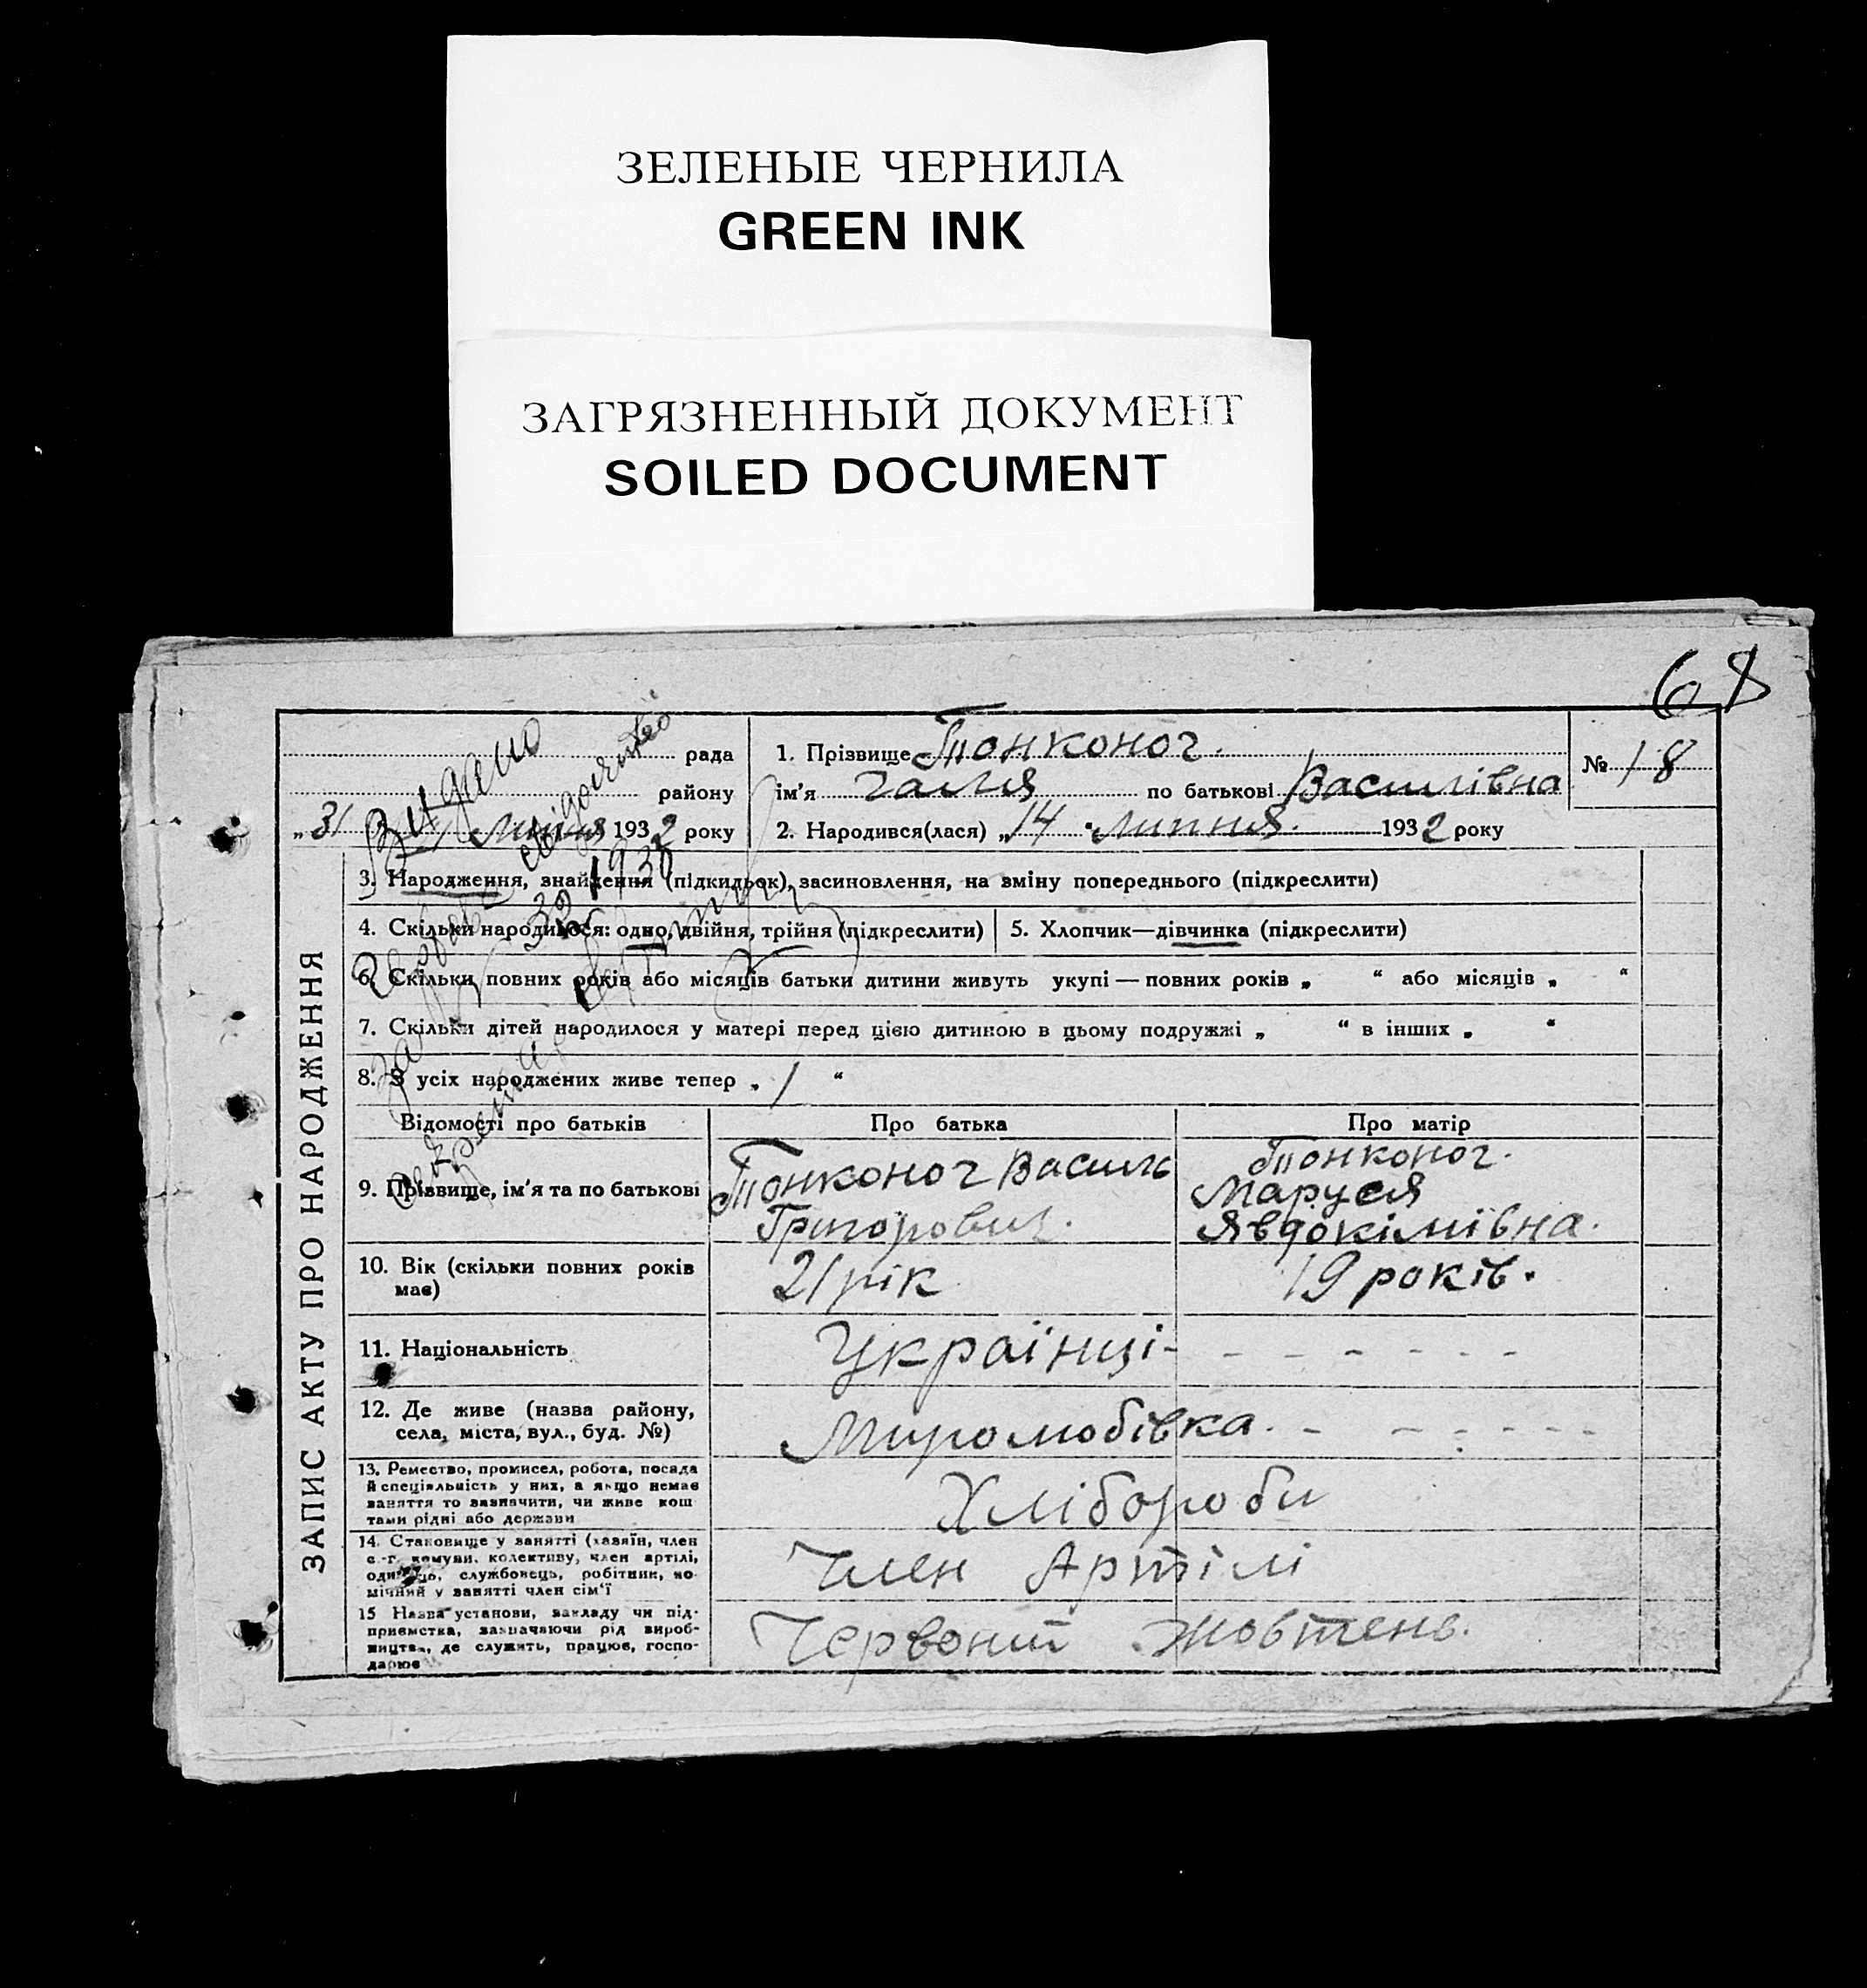 ЗЕЛЕНЫЕ ЧЕРНИЛА
GREEN INK
ЗАГРЯЗНЕННЫЙ ДОКУМЕНТ
SOILED DOCUMENT
68
ЗАПИС АКТУ ПРО НАРОДЖЕННЯ
рада
району
„31 липня 1932 року
Видано
свідоцтво
1. Прізвище Тонконог.
ім'я Галя по батькові Василівна
№ 18
2. Народився(лася) „14 липня 1932 року
3. Народження, знайдення (підкидьок), засиновлення, на зміну попереднього (підкреслити)
4. Скільки народилося: одно, двійня, трійня (підкреслити)
5. Хлопчик—дівчинка (підкреслити)
6. Скільки повних років або місяців батьки дитини живуть укупі — повних років „ “ або місяців „ “
7. Скільки дітей народилося у матері перед цією дитиною в цьому подружжі „ “ в інших „ “
8. З усіх народжених живе тепер „ 1 “
Відомості про батьків
Про батька
Про матір
9. Прізвище, ім'я та по батькові
Тонконог Василь
Григорович.
Тонконог.
Маруся
Явдокімівна.
10. Вік (скільки повних років
має)
21 рік
19 років.
11. Національність
Українці - - - - - - - -
12. Де живе (назва району,
села, міста, вул., буд. №)
Миролюбівка. - - - - - -
13. Ремество, промисел, робота, посада
й спеціяльність у них, а якщо немає
заняття то зазначити, чи живе кош
тами рідні або держави
Хлібороби
14. Становище у занятті (хазяїн, член
с.-г. комуни, колективу, член артілі,
одинець, службовець, робітник, по-
мічний у занятті член сім'ї
Член Артілі
15 Назва установи, закладу чи під-
приємства, зазначаючи рід вироб-
ництва, де служить, працює, госпо-
дарює
Червоний Жовтень.